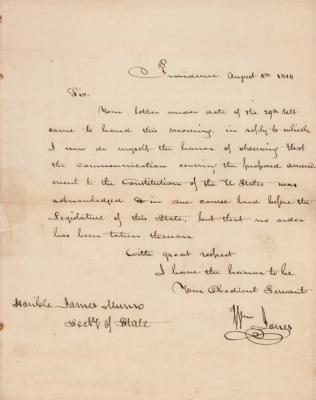 Providence August 4th 1814
Sir.
Your letter under date of the 29th Ult
came to hand this morning, in reply to which
I now do myself the honor of observing that
the communication covering the proposed amend
ment to the Constitution of the U States was
acknowledged & in due course laid before the
Legislature of this State, but that no order
has been taken thereon
With great respect
I have the honor to be
Your Obedient Servant
Wm Jones
Honble James Munro
Secty of State